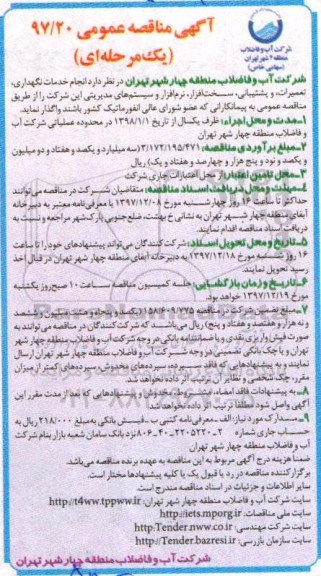 آگهی مناقصه عمومی ۹۷/۲۰
(یک مرحله ای)
شرکت آب و فاضلاب
منطقه ۴ شهر تهران
(سهامی خاص)
شرکت آب و فاضلاب منطقه چهار شهر تهران در نظر دارد انجام خدمات نگهداری،
تعمیرات، و پشتیبانی، سخت‌افزار، نرم‌افزار و سیستم‌های مدیریتی این شرکت را از طریق
مناقصه عمومی به پیمانکارانی که عضو شورای عالی انفورماتیک کشور باشند واگذار نماید.
۱ـ مدت و محل اجراء: ظرف یکسال از تاریخ ۱۳۹۸/۱/۱ در محدوده عملیاتی شرکت آب
و فاضلاب منطقه چهار شهر تهران
۲ـ مبلغ برآوردی مناقصه: ۳/۱۷۲/۱۹۵/۴۷۱ (سه میلیارد و یکصد و هفتاد و دو میلیون
و یکصد و نود و پنج هزار و چهارصد و هفتاد و یک) ریال
۳ـ محل تامین اعتبار: از محل اعتبارات جاری شرکت
۴ـ مهلت و محل دریافت اسناد مناقصه: متقاضیان شرکت در مناقصه می‌توانند
حداکثر تا ساعت ۱۶ روز چهارشنبه مورخ ۱۳۹۷/۱۲/۰۸ با معرفی‌نامه معتبر به دبیرخانه
آبفای منطقه چهار شهر تهران به نشانی خ بهشت، ضلع جنوبی پارک‌شهر مراجعه و نسبت به
دریافت اسناد مناقصه اقدام نمایند.
۵ـ تاریخ و محل تحویل اسناد: شرکت‌کنندگان می‌توانند پیشنهادهای خود را تا ساعت
۱۶ روز شنبه مورخ ۱۳۹۷/۱۲/۱۸ به دبیرخانه آبفای منطقه چهار شهر تهران در قبال اخذ
رسید تحویل نمایند.
۶ـ تاریخ و زمان بازگشایی: جلسه کمیسیون مناقصه ساعت ۱۰ صبح روز یکشنبه
مورخ ۱۳۹۷/۱۲/۱۹ خواهد بود.
۷ـ مبلغ تضمین شرکت در مناقصه ۱۵۸/۶۰۹/۷۷۵ (یکصد و پنجاه و هشت میلیون و ششصد
و نه هزار و هفتصد و هفتاد و پنج) ریال می‌باشد که شرکت‌کنندگان در مناقصه می‌توانند به
صورت فیش واریزی نقدی و یا ضمانتنامه بانکی در وجه شرکت آب و فاضلاب منطقه چهار شهر
تهران و یا چک بانکی تضمینی در وجه شرکت آب و فاضلاب منطقه چهار شهر تهران ارسال
نمایند و به پیشنهادهایی که فاقد سپرده، سپرده‌های مخدوش، سپرده‌های کمتر از میزان
مقرر، چک شخصی و نظایر آن ترتیب اثر داده نخواهد شد.
۸ـ به پیشنهادات فاقد امضاء، مشروط، مخدوش و پیشنهادهایی که بعد از مدت مقرر این
آگهی واصل شود مطلقاً ترتیب اثر داده نخواهد شد.
۹ـ مدارک مورد نیاز: الف ـ معرفی‌نامه کتبی ب ـ فیش بانکی به مبلغ ۲۱۸/۰۰۰ ریال به
حساب جاری شماره نزد بانک سامان شعبه بازار بنام شرکت
آب و فاضلاب منطقه چهار شهر تهران
ضمناً هزینه درج آگهی مربوط به این مناقصه به عهده برنده مناقصه می‌باشد.
برگزار کننده مناقصه در رد یا قبول یک یا کلیه پیشنهادها مختار است.
سایر اطلاعات و جزئیات در اسناد مناقصه مندرج است.
سایت شرکت آب و فاضلاب منطقه چهار شهر تهران: http://t4ww.tppww.ir
سایت ملی مناقصات: http://iets.mporg.ir
سایت شرکت مهندسی: http:Tender.nww.co.ir
سایت سازمان بازرسی: http://Tender.bazresi.ir
شرکت آب و فاضلاب منطقه چهار شهر تهران